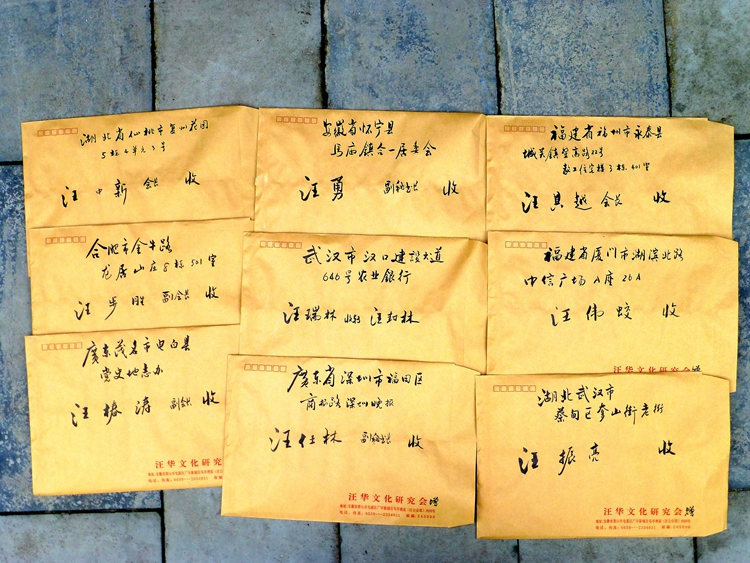 湖北省仙桃市复州花园
5栋4单元3号
汪中新 会长 收
安徽省怀宁县
马庙镇合一居委会
汪勇 副秘书长 收
福建省福州市永泰县
城关镇登高路22号
教工住宅楼3栋401室
汪其越 会长 收
合肥市金牛路
龙居山庄8栋501室
汪步胜 副会长 收
武汉市汉口建设大道
646号农业银行
汪瑞林 汪和林
福建省厦门市湖滨北路
中信广场A座26A
汪伟蛟 收
广东茂名市电白县
党史地志办
汪椿涛 副会长 收
汪华文化研究会
广东省深圳市福田区
商报路深圳晚报
汪仕林 副秘书长 收
汪华文化研究会 赠
汪华文化研究会 赠
湖北武汉市
蔡甸区奓山街老街
汪振亮 收
汪华文化研究会 赠